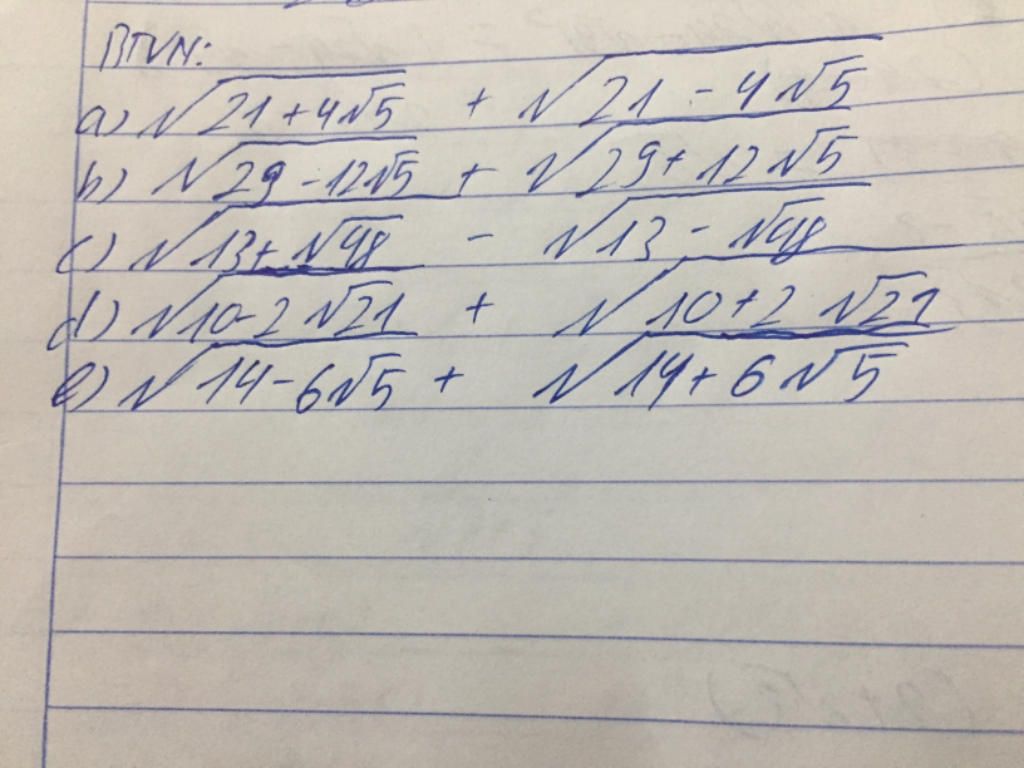 BTVN:
a) √(21 + 4√5) + √(21 - 4√5)
b) √(29 - 12√5) + √(29 + 12√5)
c) √(13 + √48) - √(13 - √48)
d) √(10 - 2√21) + √(10 + 2√21)
e) √(14 - 6√5) + √(14 + 6√5)